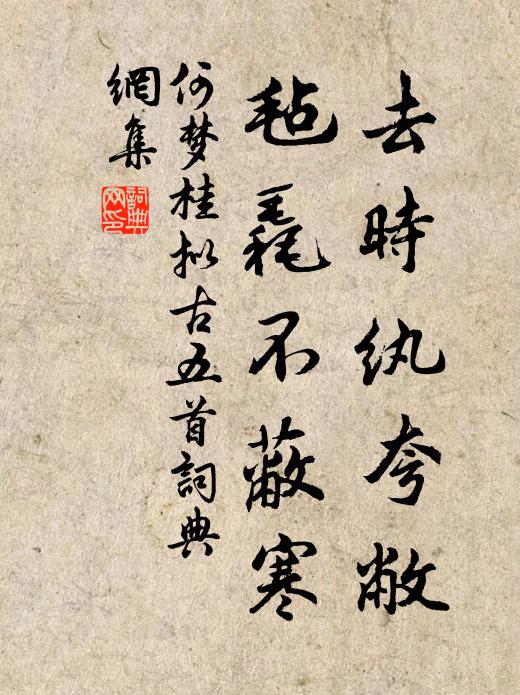 去時紈夸敝
毡毳不蔽寒
何梦桂拟古五首詞典
網集
詞典網印